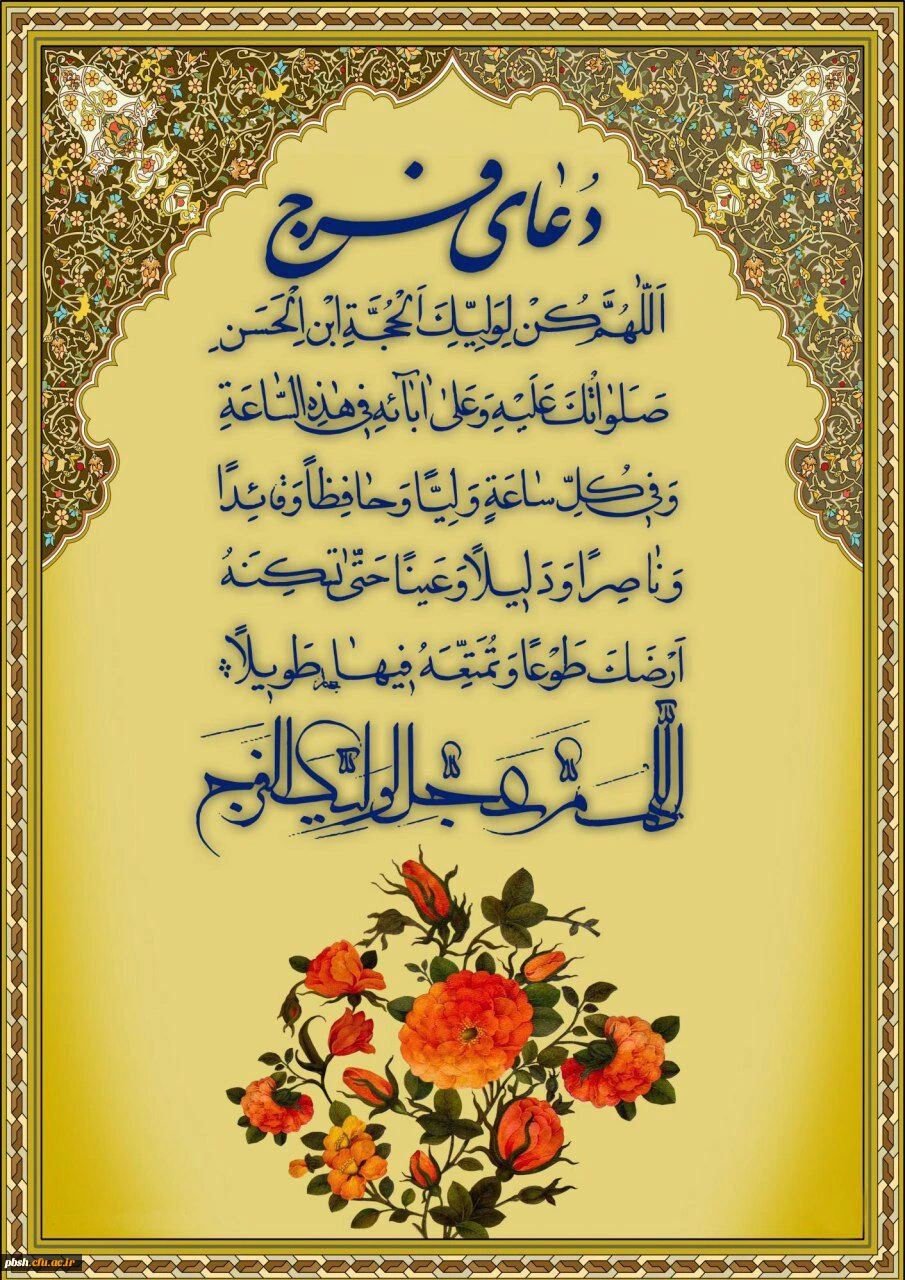 دُعٰای فرج
اَللّٰهُمَّ كُنْ لِوَلِيِّكَ اَلْحُجَّةِ ابْنِ الْحَسَنِ
صَلَوٰاتُكَ عَلَيْهِ وَعَلىٰ اٰبٰآئِهِ فِي هٰذِهِ السّٰاعَةِ
وَفِي كُلِّ سٰاعَةٍ وَلِيًّا وَحٰافِظاً وَقٰائِدًا
وَنٰاصِرًا وَدَلِيلًا وَعَيْنًا حَتّٰى تُسْكِنَهُ
اَرْضَكَ طَوْعًا وَتُمَتِّعَهُ فِيهٰا طَوِيلًا
اللّٰهم عجل لوليك الفرج
pbsh.cfu.ac.ir